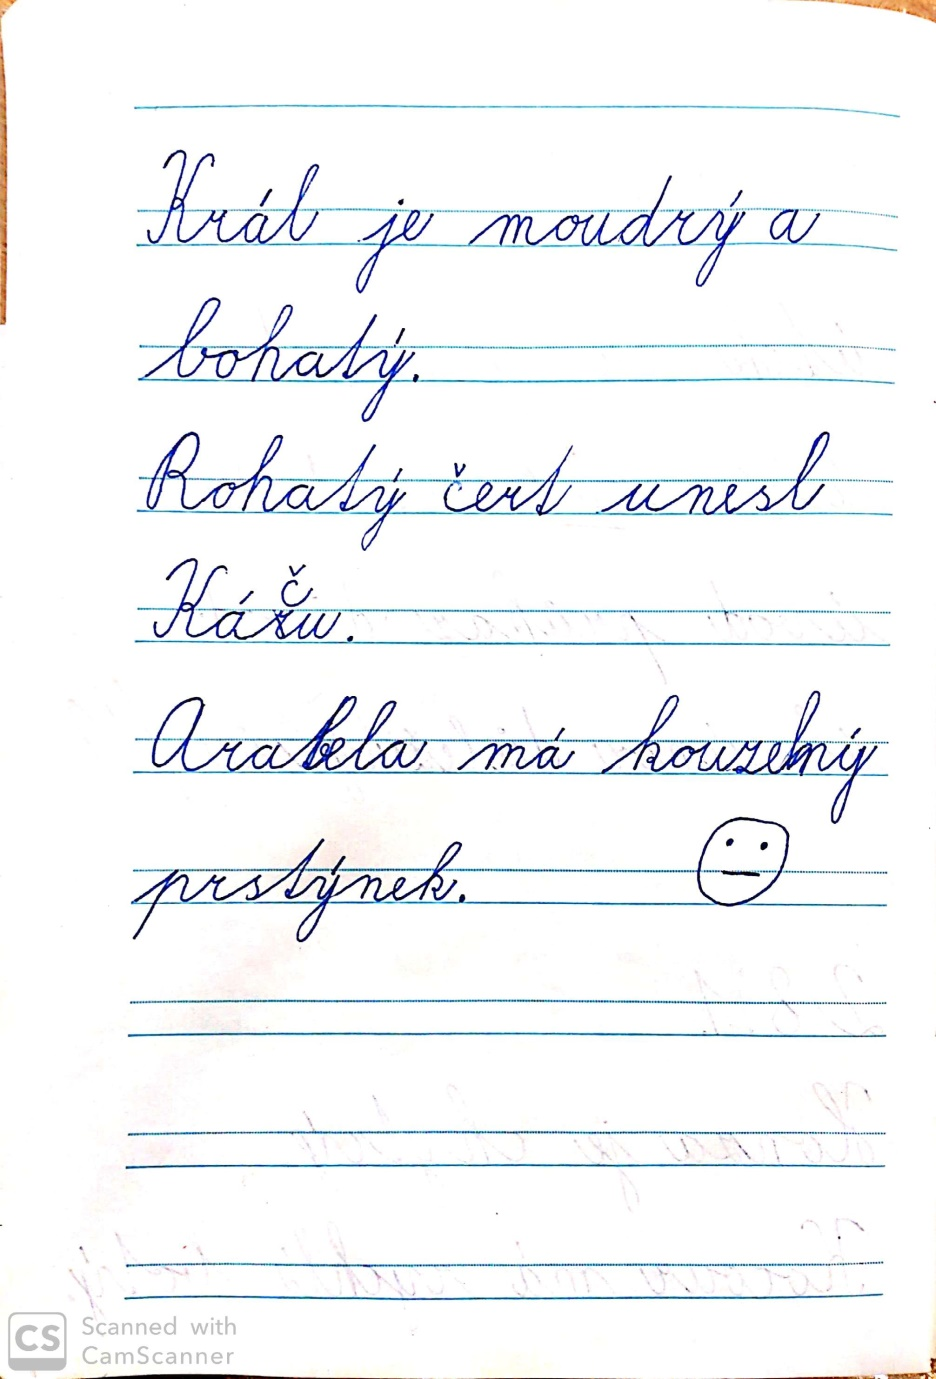 Král je moudrý a
bohatý.
Rohatý čert unesl
Káču.
Arabela má kouzelný
prstýnek.
CS Scanned with
CamScanner